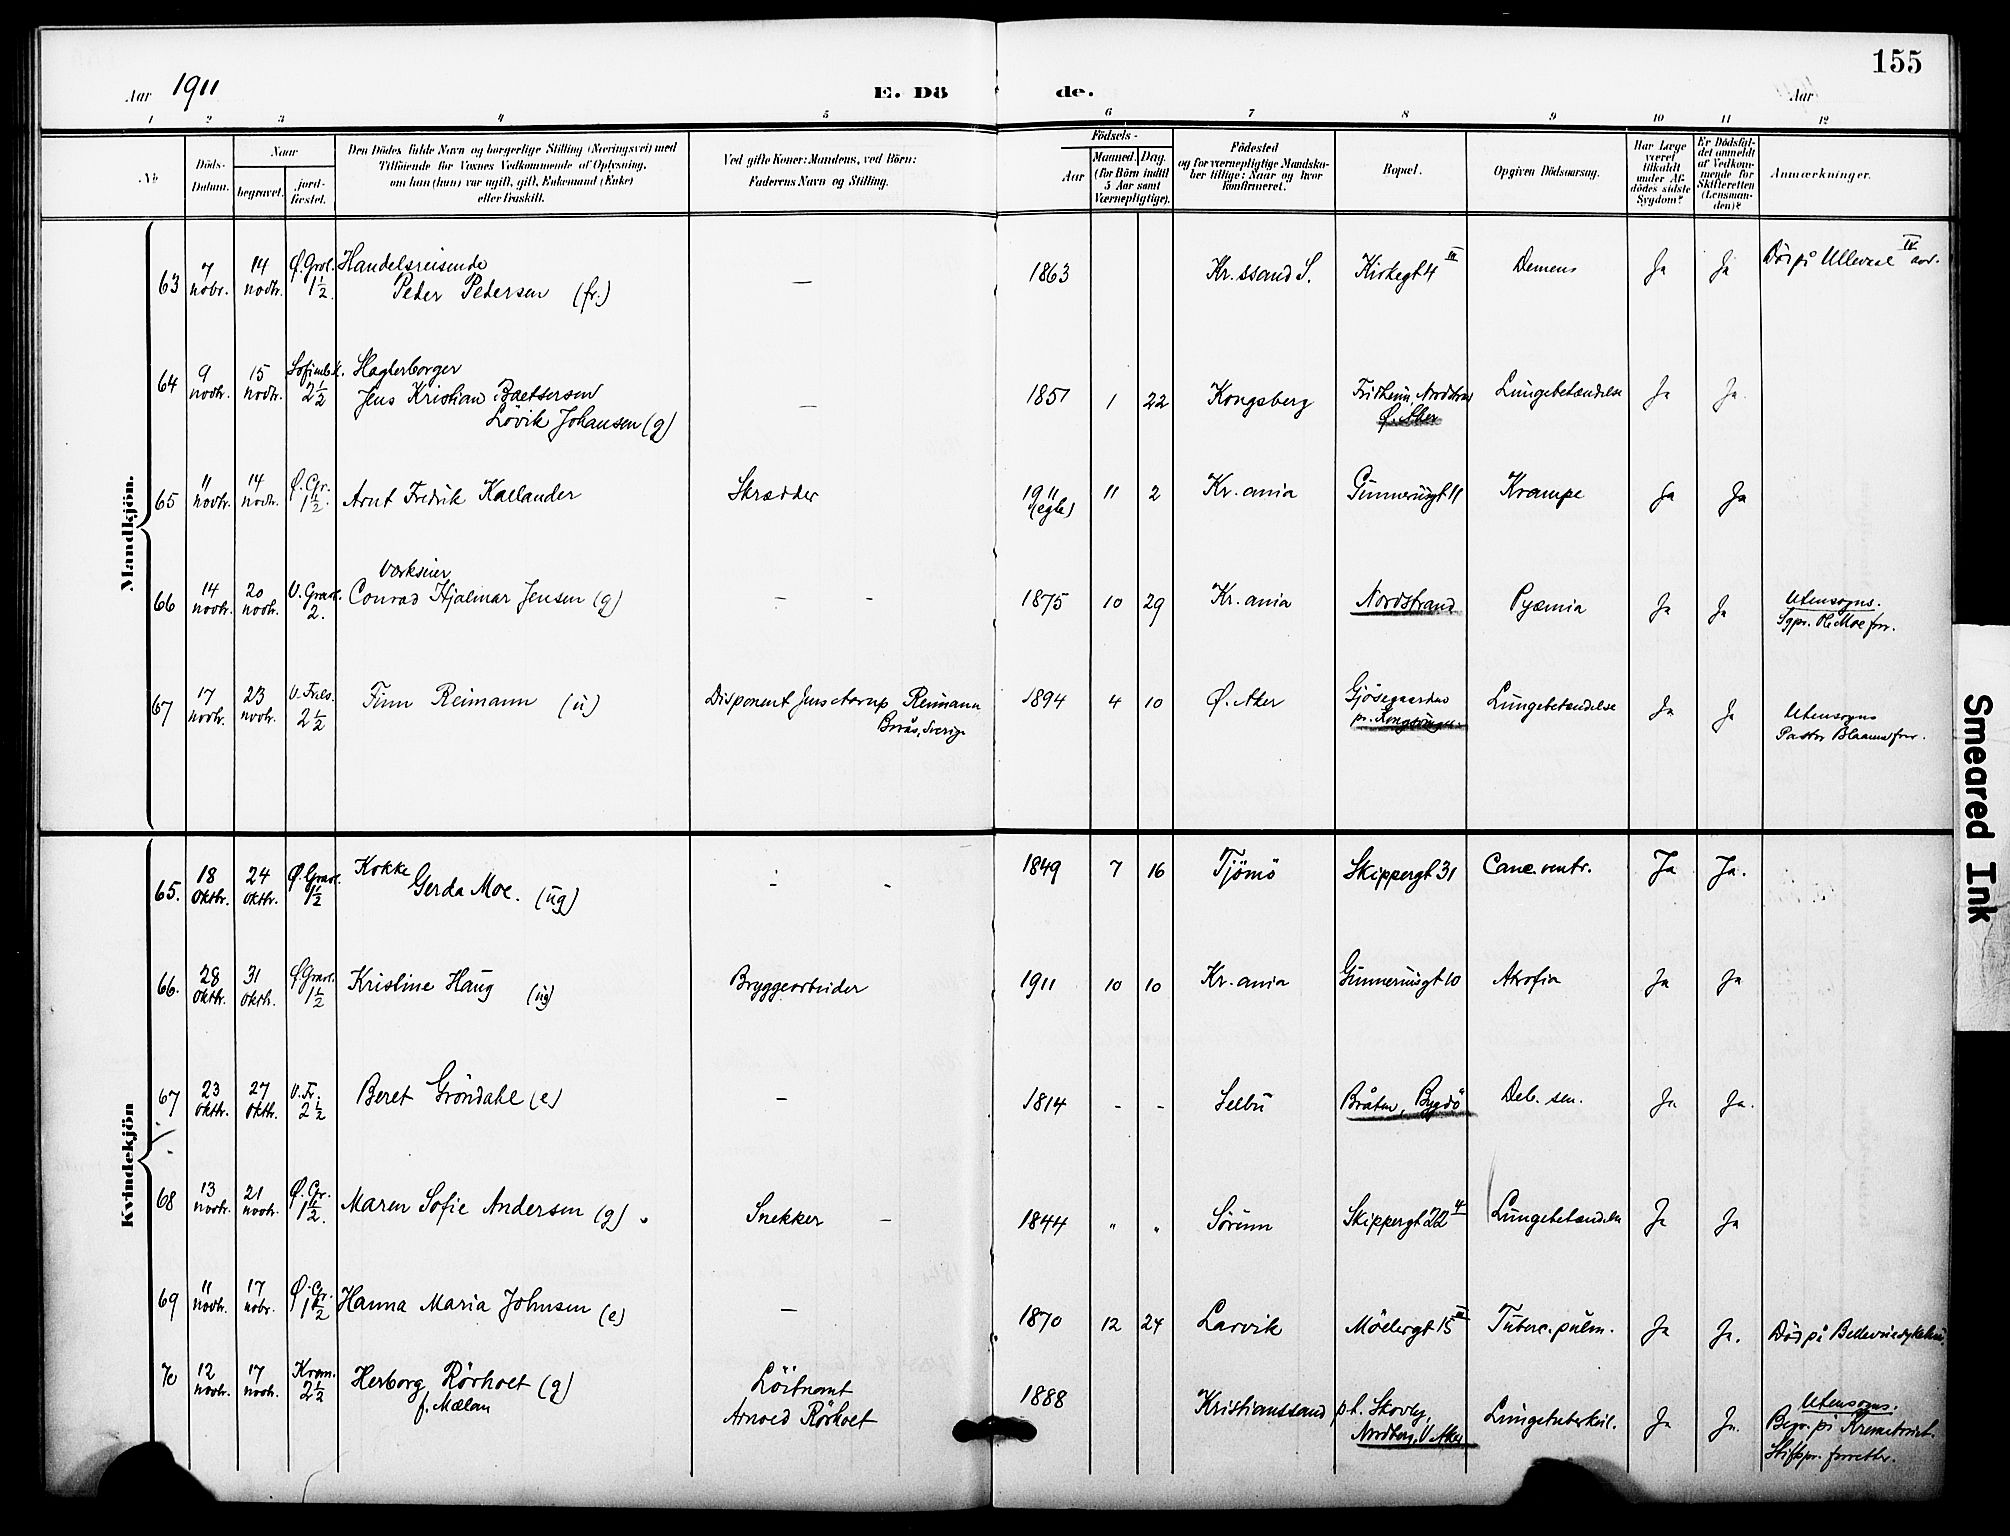 155
Aar 1911
E. Dö
de.
Aar
1 2 3 4 5 6 7 8 9 10 11 12
No
Döds-
Datum.
Naar
begravet.
jord-
fæstet.
Den Dödes fulde Navn og borgerlige Stilling (Næringsvei) med
Tilföiende for Voxnes Vedkommende af Oplysning,
om han (hun) var ugift, gift, Enkemand (Enke)
eller fraskilt.
Ved gifte Koner: Mandens, ved Börn:
Faderens Navn og Stilling.
Födsels-
Aar
Maaned. Dag.
(for Börn indtil
5 Aar samt
Værnepligtige).
Födested
og for værnepligtige Mandska-
ber tillige: Naar og hvor
konfirmeret.
Bopæl.
Opgiven Dödsaarsag.
Har Læge
været
tilkaldt
under Af-
dödes sidste
Sygdom?
Er Dödsfal-
det anmeldt
af Vedkom-
mende for
Skifteretten
(Lensman-
den)?
Anmærkninger.
Mandkjön.
63 7 nobr. 14 novbr. Ø. Grvl. 1½
Handelsreisende
Peder Pedersen (fr.) — 1863 Kr.ssand S. Kirkegt 4 III Demens Ja Ja Död på Ullevaal IV avd.
64 9 novbr. 15 novbr. 2½
Jens Kristian
Løvik Johansen (g) — 1851 1 22 Kongsberg Fridheim, Nordstrand
Ø. Aker
Lungebetændelse Ja Ja.
65 11 novbr. 14 novbr. Ø. Gr. 1½
Arnt Fredrik Kaelander Skrædder 1911 (egte) 11 2 Kr.ania Gunnerusgt 11 Krampe Ja Ja
Værkseier
66 14 novbr. 20 novbr. V. Gravl. 2. Conrad Hjalmar Jensen (g) — — 1875 10 29 Kr.ania Nordstrand Pyæmia Ja Ja Utensogns.
Sgpr. Moe forr.
67 17 novbr. 23 novbr. V. Frels. 2½ Finn Reimann (u) Disponent Jens Reimann
Borås, Sverige
1894 4 10 Ø. Aker Gjøsegaarden
pr. Kongsvinger
Lungebetændelse Ja Ja Utensogns
Pastor forr.
Kvindekjön
65. 18 oktbr. 24 oktbr. Ø. Gravl. 1½ Kokke
Gerda Moe. (ug) - - 1849 7 16 Tjömö Skippergt 31 Canc. ventr. Ja Ja.
66. 28 oktbr. 31 oktbr. Ø Gravl. 1½ Kristine Haug (ug) Bryggearbeider 1911 10 10 Kr.ania Gunnerusgt 10 Atrofia Ja Ja
67 23 oktbr. 27 oktbr. V. Fr. 2½ Beret Gröndahl (e) — 1814 - - Selbu Bråten, Bygdö Deb. sen. Ja Ja.
68 13 novbr. 21 novbr. Ø. Gr. 1½ Maren Sofie Andersen (g) Snekker — 1844 " " Sørum Skippergt 22 4 Lungebetændelse Ja Ja
69 11 novbr. 17 nobr. Ø. Gr. 1½ Hanna Maria Johnsen (e) — 1870 12 24 Larvik Möllergt 15 III Tuberc. pulm. Ja Ja. Död på Bellevue sykehus.
70 12 novbr. 17 novbr. Krem. 2½ Herborg Rörholt (g)
f. Mælan
Löitnant
Arnold Rörholt
1888 Kristianssand p.t. Skovly,
Nordberg, V. Aker
Lungetuberkul. Ja Ja. Utensogns.
Begr. på Krematoriet.
Stiftspr. forretter.
Smeared Ink